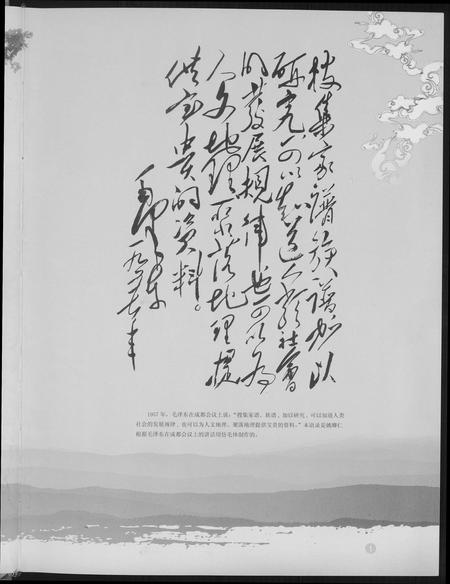 搜集家谱族谱加以
研究可以知道人类社会
的发展规律也可以为
人文地理聚落地理提
供宝贵的资料。
毛泽东
一九五七年
1957 年，毛泽东在成都会议上说：“搜集家谱、族谱，加以研究，可以知道人类
社会的发展规律，也可以为人文地理、聚落地理提供宝贵的资料。”本语录是姚仁
根据毛泽东在成都会议上的讲话用仿毛体制作的。
1